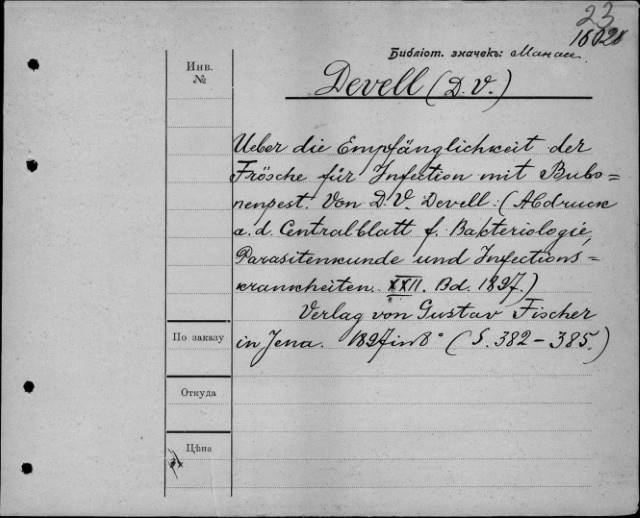 23
Библіот. значекъ: Манас.
Инв.
№
Devell (D. V.)
Ueber die Empfänglichkeit der
Frösche für Infection mit Bubo=
nenpest. Von D. V. Devell. (Abdruck
a. d. Centralblatt f. Bakteriologie,
Parasitenkunde und Infections=
krankheiten. XXII. Bd. 1897.)
Verlag von Gustav Fischer
in Jena. 1897 in 8° (S. 382–385.)
По заказу
Откуда
Цѣна